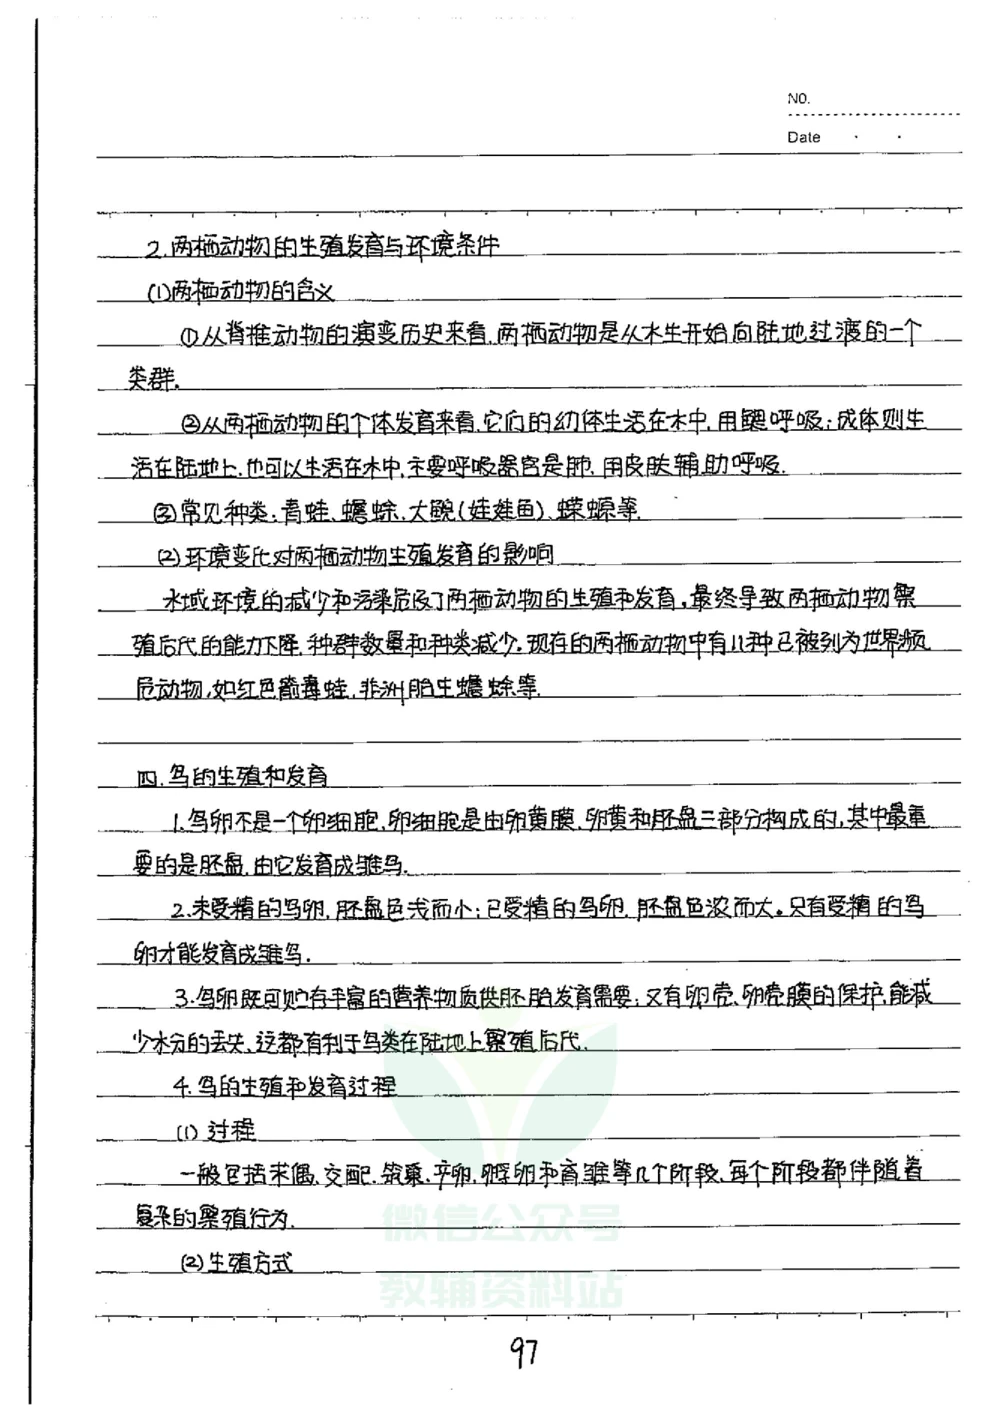 NO.
Date
2.两栖动物的生殖发育与环境条件
(1)两栖动物的含义
①从脊椎动物的演变历史来看,两栖动物是从水生开始向陆地过渡的一个
类群.
②从两栖动物的个体发育来看,它们的幼体生活在水中,用鳃呼吸;成体则生
活在陆地上.也可以生活在水中,主要呼吸器官是肺,用皮肤辅助呼吸.
③常见种类:青蛙、蟾蜍、大鲵(娃娃鱼)、蝾螈等.
(2)环境变化对两栖动物生殖发育的影响
水域环境的减少和污染危及了两栖动物的生殖和发育,最终导致两栖动物繁
殖后代的能力下降,种群数量和种类减少。现存的两栖动物中有几种已被列为世界濒
危动物,如红色箭毒蛙,非洲胎生蟾蜍等.
四.鸟的生殖和发育
1.鸟卵不是一个卵细胞,卵细胞是由卵黄膜、卵黄和胚盘三部分构成的,其中最重
要的是胚盘,由它发育成雏鸟.
2.未受精的鸟卵,胚盘色浅而小;已受精的鸟卵,胚盘色浓而大。只有受精的鸟
卵才能发育成雏鸟.
3.鸟卵既可贮存丰富的营养物质供胚胎发育需要;又有卵壳、卵壳膜的保护,能减
少水分的丢失、这都有利于鸟类在陆地上繁殖后代.
4.鸟的生殖和发育过程
(1)过程
一般包括求偶、交配、筑巢、产卵、孵卵和育雏等几个阶段,每个阶段都伴随着
复杂的繁殖行为.
(2)生殖方式
微信公众号
教辅资料站
97